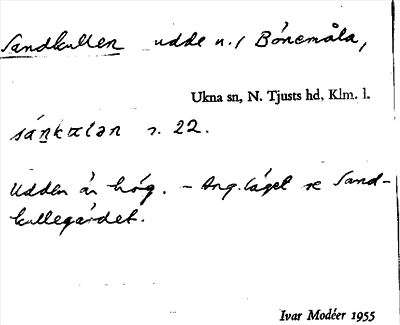 Sandkullen udde u./ Bönemåla,
Ukna sn, N. Tjusts hd, Klm. l.
s. 22.
Udden är hög. – Ang. läget se Sand-
kullegärdet.
Ivar Modéer 1955